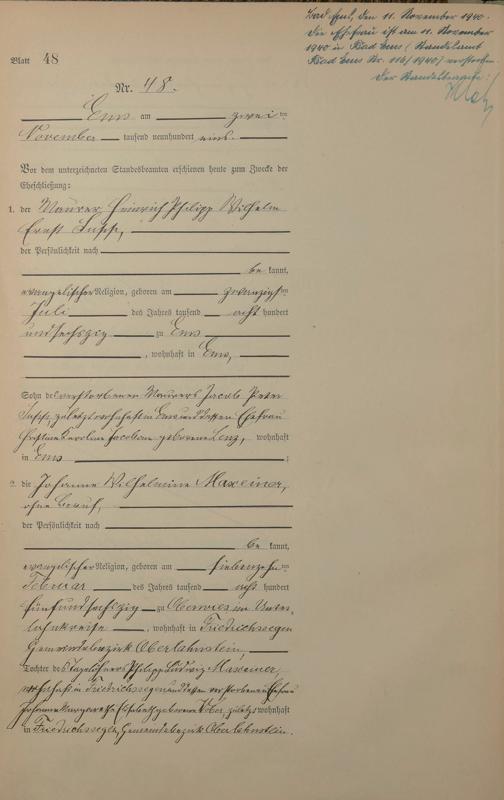 Bad Ems, den 11. November 1940.
Die Ehefrau ist am 11. November
1940 in Bad Ems (Standesamt
Bad Ems Nr. 116/1940) verstorben.
Der Standesbeamte:
Blatt 48
Nr. 48.
Ems am zwei ten
November tausend neunhundert eins.
Vor dem unterzeichneten Standesbeamten erschienen heute zum Zwecke der
Eheschließung:
1. der Maurer Heinrich Philipp Wilhelm
Ernst
der Persönlichkeit nach
be kannt,
evangelischer Religion, geboren am zwanzigsten
Juli des Jahres tausend acht hundert
undsechszig zu Ems
, wohnhaft in Ems,
Sohn des verstorbenen Maurers Jacob Peter
zuletzt wohnhaft in Ems und dessen Ehefrau
Christine Karoline Jacobine geborene Lenz, wohnhaft
in Ems ;
2. die Johanne Wilhelmine Maxeiner,
ohne Beruf,
der Persönlichkeit nach
be kannt,
evangelischer Religion, geboren am siebenzehn ten
Februar des Jahres tausend acht hundert
fünfundsechszig zu Oberwies im Unter-
lahnkreise , wohnhaft in Friedrichssegen
Gemeindebezirk Oberlahnstein,
Tochter des Tagelöhners Philipp Ludwig Maxeiner,
wohnhaft in Friedrichssegen und dessen verstorbenen Ehefrau
Johannette Elisabeth geborene Weber, zuletzt wohnhaft
in Friedrichssegen, Gemeindebezirk Oberlahnstein.